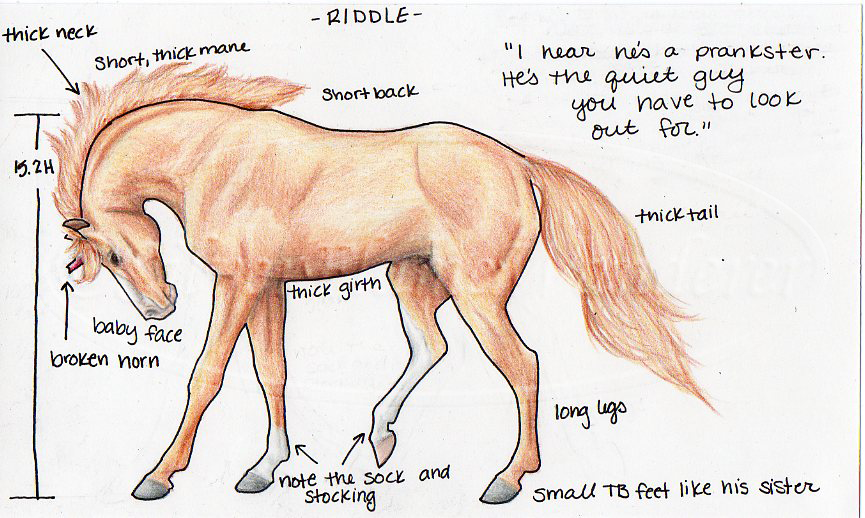 -RIDDLE-
thick neck
short, thick mane
short back
"I hear he's a prankster.
He's the quiet guy
you have to look
out for."
15.2H
thick tail
thick girth
baby face
broken horn
long legs
note the sock and
stocking
small TB feet like his sister